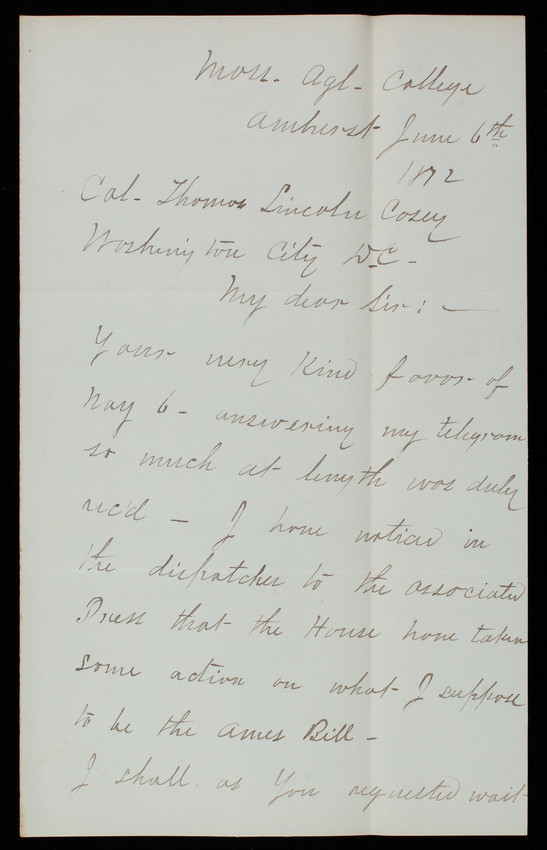 Mass. Agl. College
Amherst June 6th
1872
Col. Thomas Lincoln Casey
Washington City D.C.
My dear Sir: —
Your very kind favor of
May 6 - answering my telegram
so much at length was duly
rec'd — I have noticed in
the dispatches to the associated
Press that the House have taken
some action on what I suppose
to be the Ames Bill —
I shall as you requested wait